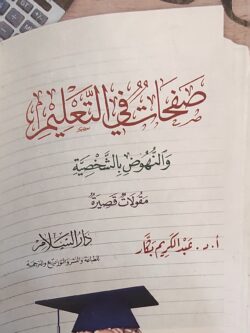 صفحات في التعليم
والنهوض بالشخصية
مقولات قصيرة
أ. د. عبدالكريم بكار
دار السلام
للطباعة والنشر والتوزيع والترجمة